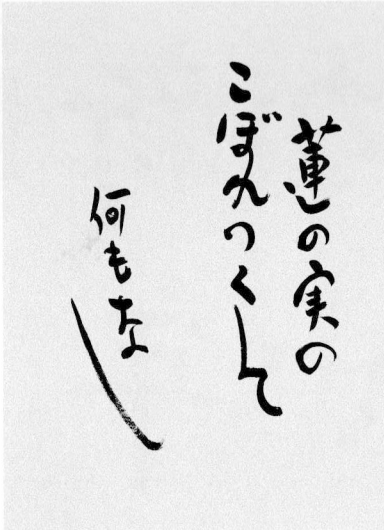 蓮の実の
こぼれつくして
何もなし